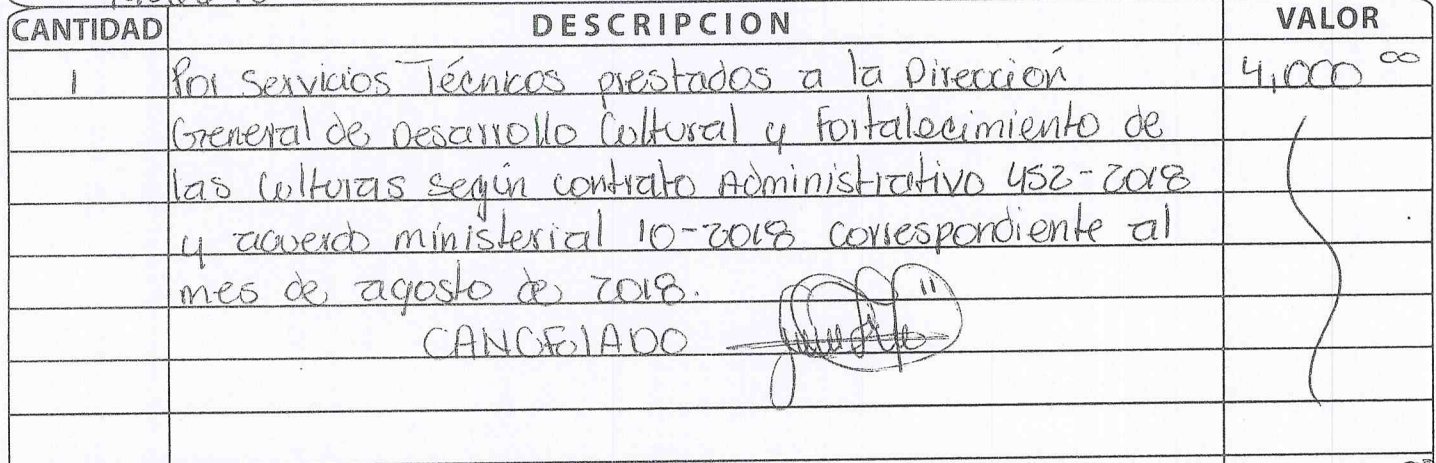 CANTIDAD DESCRIPCION VALOR
1 Por Servicios Técnicos prestados a la Dirección 4,000 00
General de Desarrollo Cultural y Fortalecimiento de
las Culturas según contrato Administrativo 452-2018
y acuerdo ministerial 10-2018 correspondiente al
mes de agosto de 2018.
CANCELADO